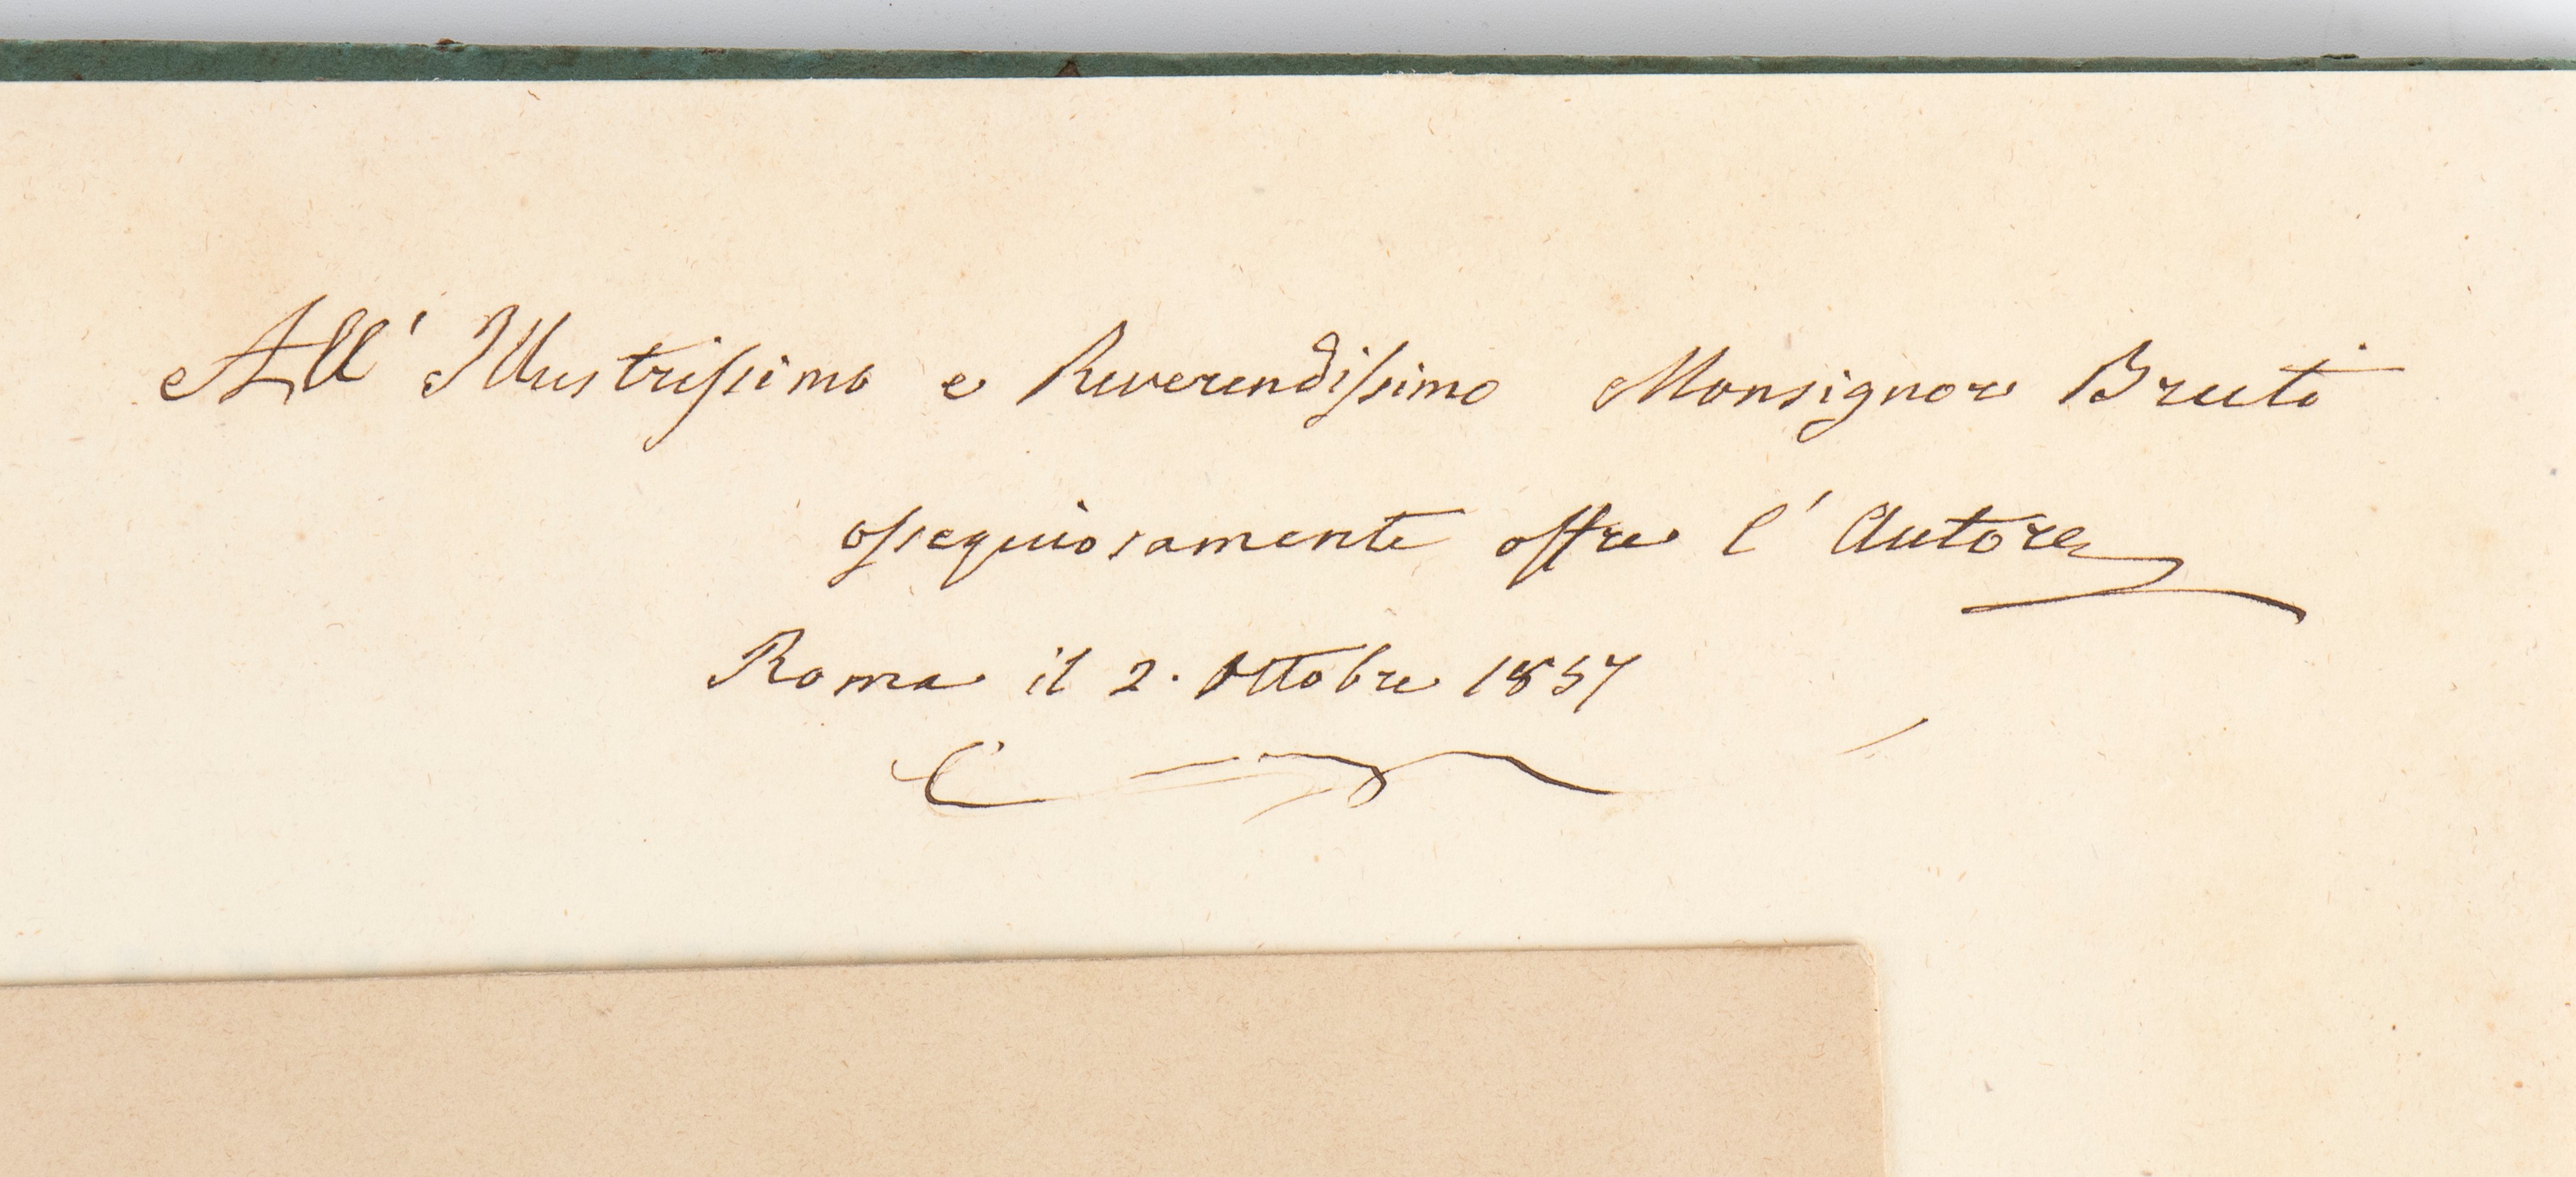 All' Illustrissimo e Reverendissimo Monsignore Bruti
ossequiosamente offre l'Autore
Roma il 2. Ottobre 1857